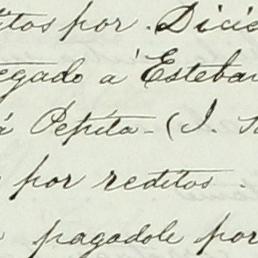 ditos por. Dicie
egado a' Esteban
á Pepita - (J. Sa
por reditos.
pagadole por